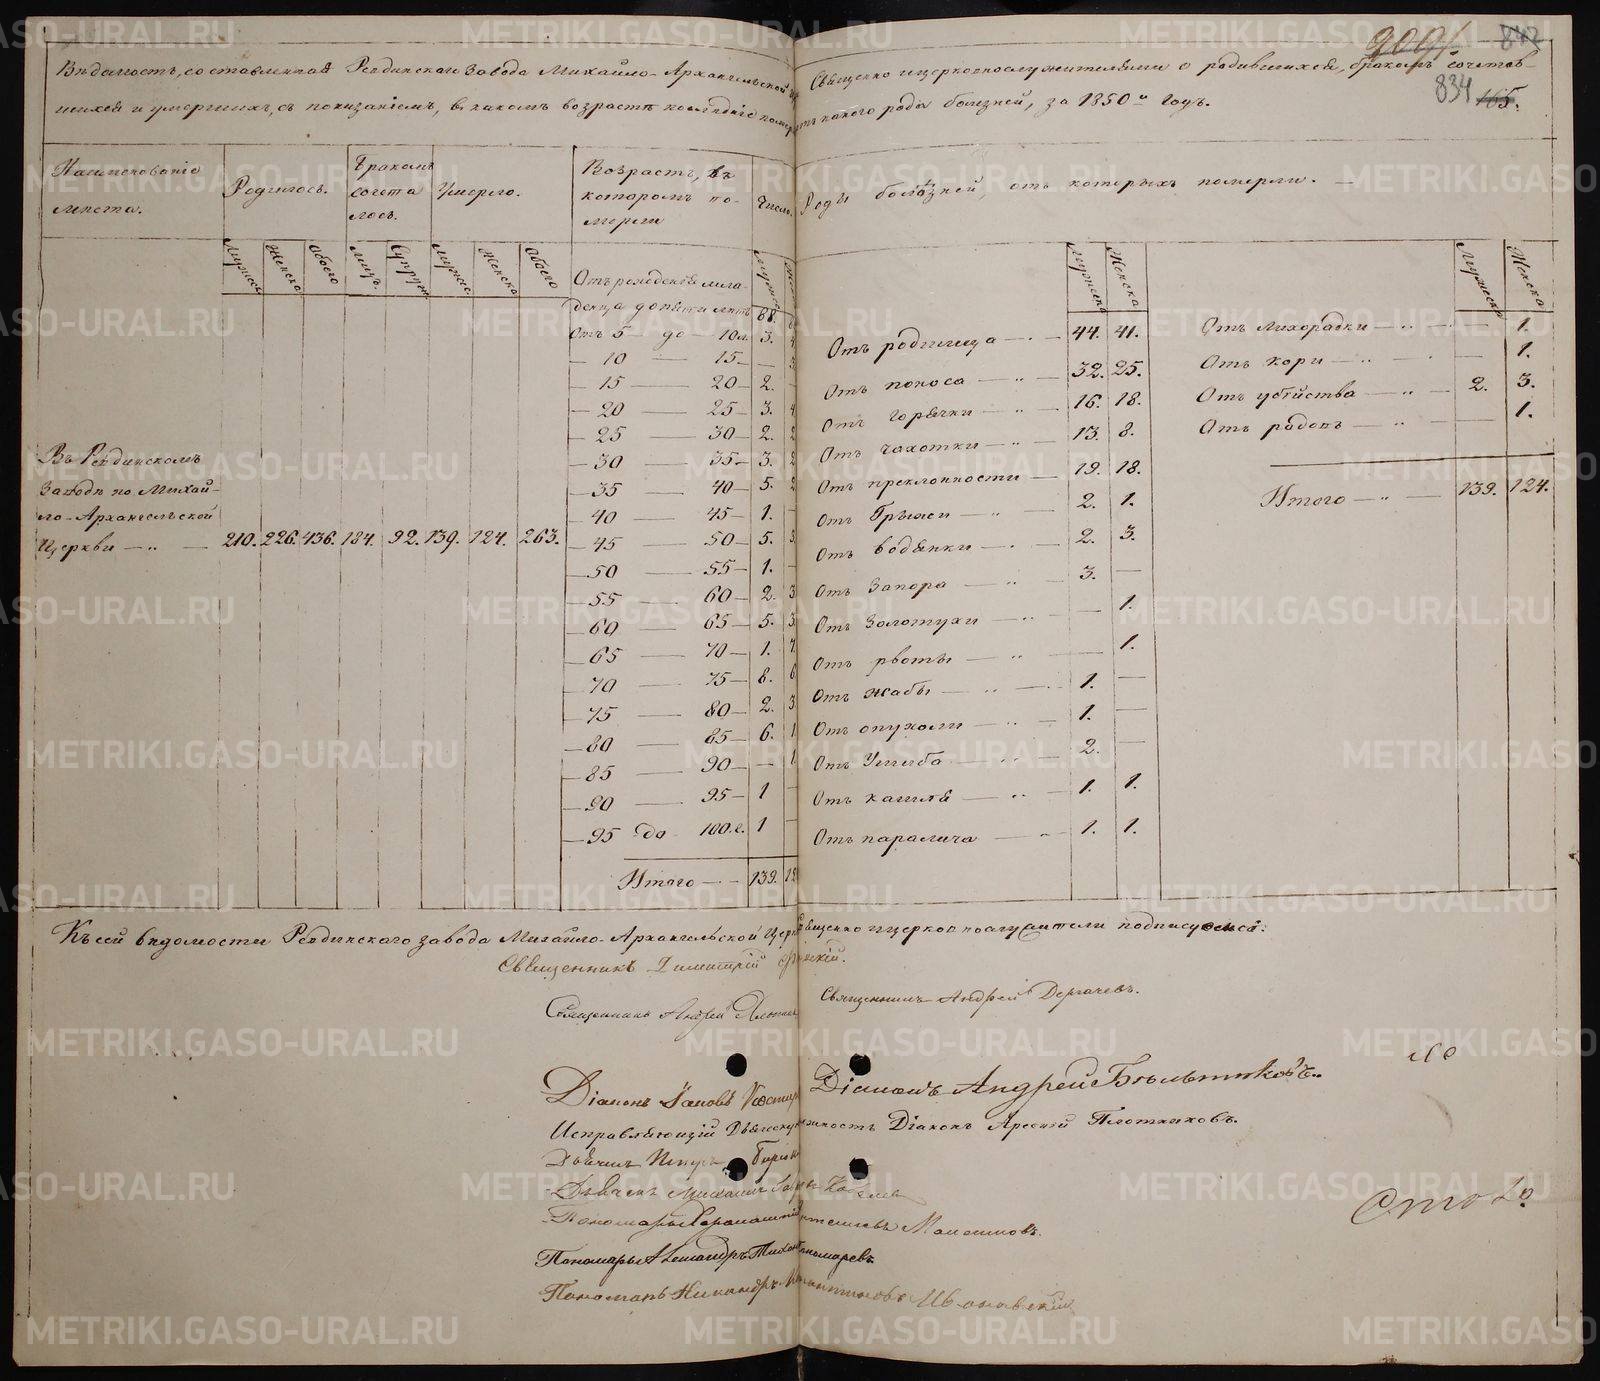 900/ 842
Вѣдомость, составленная Ревдинскаго Завода Михайло-Архангельской Священно и церковнослужителями о родившихся, бракомъ сочетав-
шихся и умершихъ, съ показаніемъ, въ какомъ возрастѣ и какого рода болѣзней, за 1850й годъ.
834 165.
Наименованіе мѣста.
Родилось.
Бракомъ сочета лось.
Умерло.
Возрастъ, въ которомъ по-мерли
Число.
Роды болѣзней, отъ которыхъ померли. —
Мужеск Женска Обоего Лицъ. Супруж Мужес Женска Обоего
Мужеск Женска
Мужеск Женска
Въ Ревдинскомъ
Заводѣ по Михай-
ло-Архангельской
Церкви — 〃 — 210. 226. 436. 184. 92. 139. 124. 263.
Отъ рожденія мла-
денца до пяти лѣтъ 88.
Отъ 5 — до — 10 л. 3.
— 10 — 15 —
— 15 — 20 — 2.
— 20 — 25 — 3. 4
— 25 — 30 — 2. 2
— 30 — 35 — 3. 2
— 35 — 40 — 5. 2
— 40 — 45 — 1. —
— 45 — 50 — 5. 3
— 50 — 55 — 1. —
— 55 — 60 — 2. 3
— 60 — 65 — 5. 3.
— 65 — 70 — 1. 7.
— 70 — 75 — 8. 6
— 75 — 80 — 2. 3
— 80 — 85 — 6. 1
— 85 — 90 — — 1
— 90 — 95 — 1 —
— 95 до 100. л. 1 —
Итого — 139. 12
Отъ родимца — 〃 — 44. 41.
Отъ поноса — 〃 — 32. 25.
Отъ горячки — 〃 — 16. 18.
Отъ чахотки — 〃 — 13. 8.
Отъ преклонности — 19. 18.
Отъ Грыжи — 〃 2. 1.
Отъ водянки — 〃 2. 3.
Отъ Запора — 〃 — 3. —
Отъ Золотухи — 〃 — — 1.
Отъ рвоты — 〃 — 1.
Отъ жабы — 〃 — 1. —
Отъ опухоли — 〃 — 1. —
Отъ Ушиба — 〃 — 2. —
Отъ кашля — 〃 — 1. 1.
Отъ паралича — 〃 — 1. 1.
Отъ лихорадки — 〃 — — 1.
Отъ кори — 〃 — — 1.
Отъ убійства — 〃 — 2. 3.
Отъ родовъ — 〃 — — 1.
Итого — 〃 — 139. 124.
Къ сей вѣдомости Ревдинскаго завода Михайло-Архангельской Церкви священно и церковнослужители подписуемся:
Священникъ Димитрій
Священникъ Андрей
Священникъ Андрей Дергачевъ.
Діаконъ Іаковъ
Діаконъ Андрей Бѣльтюковъ.
Исправляющій Дьяческую должность Діаконъ Арсеній Плотниковъ.
Дьячекъ Петръ
Дьячекъ Михаилъ
Пономарь
Пономарь Александръ Пономаревъ
Пономарь Никандръ
Сто
METRIKI.GASO-URAL.RU